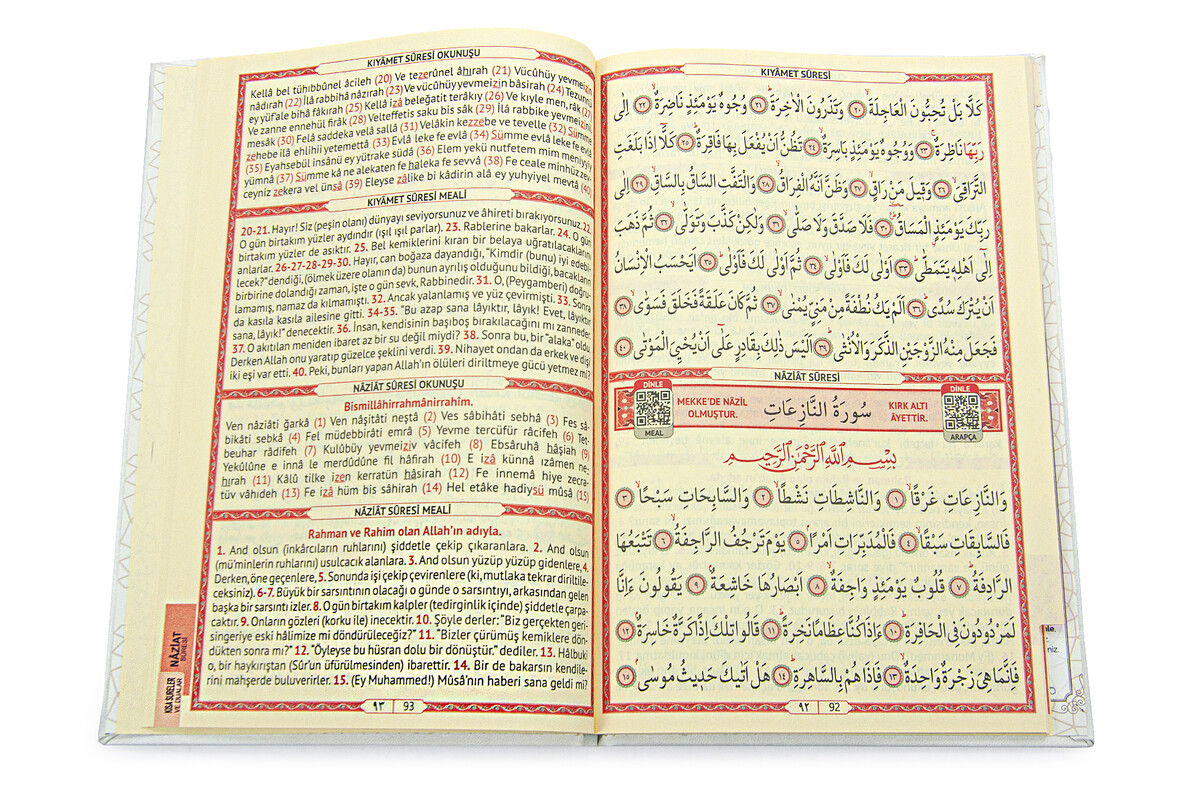 KIYÂMET SÛRESİ
كَلَّا بَلْ تُحِبُّونَ الْعَاجِلَةَ ۙ ﴿٢٠﴾ وَتَذَرُونَ الْاٰخِرَةَ ۜ ﴿٢١﴾ وُجُوهٌ يَوْمَئِذٍ نَاضِرَةٌ ۙ ﴿٢٢﴾ اِلٰى
رَبِّهَا نَاظِرَةٌ ۚ ﴿٢٣﴾ وَوُجُوهٌ يَوْمَئِذٍ بَاسِرَةٌ ۙ ﴿٢٤﴾ تَظُنُّ اَنْ يُفْعَلَ بِهَا فَاقِرَةٌ ۜ ﴿٢٥﴾ كَلَّٓا اِذَا بَلَغَتِ
التَّرَاقِيَ ۙ ﴿٢٦﴾ وَقِيلَ مَنْ رَاقٍ ۙ ﴿٢٧﴾ وَظَنَّ اَنَّهُ الْفِرَاقُ ۙ ﴿٢٨﴾ وَالْتَفَّتِ السَّاقُ بِالسَّاقِ ۙ ﴿٢٩﴾ اِلٰى
رَبِّكَ يَوْمَئِذٍ الْمَسَاقُ ۜ ﴿٣٠﴾ فَلَا صَدَّقَ وَلَا صَلّٰى ۙ ﴿٣١﴾ وَلٰكِنْ كَذَّبَ وَتَوَلّٰى ۙ ﴿٣٢﴾ ثُمَّ ذَهَبَ
اِلٰٓى اَهْلِهٖ يَتَمَطّٰى ۜ ﴿٣٣﴾ اَوْلٰى لَكَ فَاَوْلٰى ۙ ﴿٣٤﴾ ثُمَّ اَوْلٰى لَكَ فَاَوْلٰى ۜ ﴿٣٥﴾ اَيَحْسَبُ الْاِنْسَانُ
اَنْ يُتْرَكَ سُدًى ۜ ﴿٣٦﴾ اَلَمْ يَكُ نُطْفَةً مِنْ مَنِيٍّ يُمْنٰى ۙ ﴿٣٧﴾ ثُمَّ كَانَ عَلَقَةً فَخَلَقَ فَسَوّٰى ۙ ﴿٣٨﴾
فَجَعَلَ مِنْهُ الزَّوْجَيْنِ الذَّكَرَ وَالْاُنْثٰى ۜ ﴿٣٩﴾ اَلَيْسَ ذٰلِكَ بِقَادِرٍ عَلٰٓى اَنْ يُحْيِيَ الْمَوْتٰى ﴿٤٠﴾
NÂZİÂT SÛRESİ
DİNLE
MEAL
MEKKE'DE NÂZİL
OLMUŞTUR.
سُورَةُ النَّازِعَاتِ
KIRK ALTI
ÂYETTİR.
DİNLE
ARAPÇA
بِسْمِ اللّٰهِ الرَّحْمٰنِ الرَّحِيمِ
وَالنَّازِعَاتِ غَرْقًا ۙ ﴿١﴾ وَالنَّاشِطَاتِ نَشْطًا ۙ ﴿٢﴾ وَالسَّابِحَاتِ سَبْحًا ۙ ﴿٣﴾
فَالسَّابِقَاتِ سَبْقًا ۙ ﴿٤﴾ فَالْمُدَبِّرَاتِ اَمْرًا ۢ ﴿٥﴾ يَوْمَ تَرْجُفُ الرَّاجِفَةُ ۙ ﴿٦﴾ تَتْبَعُهَا
الرَّادِفَةُ ۜ ﴿٧﴾ قُلُوبٌ يَوْمَئِذٍ وَاجِفَةٌ ۙ ﴿٨﴾ اَبْصَارُهَا خَاشِعَةٌ ۢ ﴿٩﴾ يَقُولُونَ ءَاِنَّا
لَمَرْدُودُونَ فِي الْحَافِرَةِ ۜ ﴿١٠﴾ ءَاِذَا كُنَّا عِظَامًا نَخِرَةً ۜ ﴿١١﴾ قَالُوا تِلْكَ اِذًا كَرَّةٌ خَاسِرَةٌ ۢ ﴿١٢﴾
فَاِنَّمَا هِيَ زَجْرَةٌ وَاحِدَةٌ ۙ ﴿١٣﴾ فَاِذَا هُمْ بِالسَّاهِرَةِ ۜ ﴿١٤﴾ هَلْ اَتٰيكَ حَدِيثُ مُوسٰى ۢ ﴿١٥﴾
٩٢ 92
KIYÂMET SÛRESİ OKUNUŞU
Kellâ bel tühıbbûnel âcileh (20) Ve tezerûnel âhırah (21) Vücûhüy yevmeizin
nâdırah (22) İlâ rabbihâ nâzırah (23) Ve vücûhüy yevmeizin bâsirah (24) Tezunnü
ey yüf'ale bihâ fâkırah (25) Kellâ izâ beleğatit terâkıy (26) Ve kıyle men, râk (27)
Ve zanne ennehül firâk (28) Velteffetis saku bis sâk (29) İlâ rabbike yevmeizinil
mesâk (30) Felâ saddeka velâ sallâ (31) Velâkin kezzebe ve tevelle (32) Sümme
zehebe ilâ ehlihîi yetemettâ (33) Evlâ leke fe evlâ (34) Sümme evlâ leke fe evlâ
(35) Eyahsebül insânü ey yütrake südâ (36) Elem yekü nutfetem mim meniyyiy
yümnâ (37) Sümme kâ ne alekaten fe haleka fe sevvâ (38) Fe ceale minhüz zev-
ceyniz zekera vel ünsâ (39) Eleyse zâlike bi kâdirin alâ ey yuhyiyel mevtâ (40)
KIYÂMET SÛRESİ MEALİ
20-21. Hayır! Siz (peşin olanı) dünyayı seviyorsunuz ve âhireti bırakıyorsunuz. 22.
O gün birtakım yüzler aydındır (ışıl ışıl parlar). 23. Rablerine bakarlar. 24. O gün
birtakım yüzler de asıktır. 25. Bel kemiklerini kıran bir belaya uğratılacaklarını
anlarlar. 26-27-28-29-30. Hayır, can boğaza dayandığı, "Kimdir (bunu) iyi edebi-
lecek?" dendiği, (ölmek üzere olanın da) bunun ayrılış olduğunu bildiği, bacakların
birbirine dolandığı zaman, işte o gün sevk, Rabbinedir. 31. O, (Peygamberi) doğru-
lamamış, namaz da kılmamıştı. 32. Ancak yalanlamış ve yüz çevirmişti. 33. Sonra
da kasıla kasıla ailesine gitti. 34-35. "Bu azap sana lâyıktır, lâyık! Evet, lâyıktır
sana, lâyık!" denecektir. 36. İnsan, kendisinin başıboş bırakılacağını mı zanneder.
37. O akıtılan meniden ibaret az bir su değil miydi? 38. Sonra bu, bir "alaka" oldu.
Derken Allah onu yaratıp güzelce şeklini verdi. 39. Nihayet ondan da erkek ve dişi
iki eşi var etti. 40. Peki, bunları yapan Allah'ın ölüleri diriltmeye gücü yetmez mi?
NÂZİÂT SÛRESİ OKUNUŞU
Bismillâhirrahmânirrahîm.
Ven nâziâti ğarkâ (1) Ven nâşitâti neştâ (2) Ves sâbihâti sebhâ (3) Fes sâ-
bikâti sebkâ (4) Fel müdebbirâti emrâ (5) Yevme tercüfür râcifeh (6) Tet-
beuhar râdifeh (7) Kulûbüy yevmeiziv vâcifeh (8) Ebsâruhâ hâşiah (9)
Yekûlûne e innâ le merdûdûne fil hâfirah (10) E izâ künnâ ızâmen ne-
hırah (11) Kâlû tilke izen kerratün hâsirah (12) Fe innemâ hiye zecra-
tüv vâhıdeh (13) Fe izâ hüm bis sâhirah (14) Hel etâke hadiysü mûsâ (15)
NÂZİÂT SÛRESİ MEALİ
Rahman ve Rahim olan Allah'ın adıyla.
1. And olsun (inkârcıların ruhlarını) şiddetle çekip çıkaranlara. 2. And olsun
(mü'minlerin ruhlarını) usulcacık alanlara. 3. And olsun yüzüp yüzüp gidenlere, 4.
Derken, öne geçenlere, 5. Sonunda işi çekip çevirenlere (ki, mutlaka tekrar diriltile-
ceksiniz). 6-7. Büyük bir sarsıntının olacağı o günde o sarsıntıyı, arkasından gelen
başka bir sarsıntı izler. 8. O gün birtakım kalpler (tedirginlik içinde) şiddetle çarpa-
caktır. 9. Onların gözleri (korku ile) inecektir. 10. Şöyle derler: "Biz gerçekten geri-
singeriye eski hâlimize mi döndürüleceğiz?" 11. "Bizler çürümüş kemiklere dön-
dükten sonra mı?" 12. "Öyleyse bu hüsran dolu bir dönüştür." dediler. 13. Hâlbuki
o, bir haykırıştan (Sûr'un üfürülmesinden) ibarettir. 14. Bir de bakarsın kendile-
rini mahşerde buluverirler. 15. (Ey Muhammed!) Mûsâ'nın haberi sana geldi mi?
٩٣ 93
NÂZİÂT
SÛRESİ
KISA SURELER
VE DUALAR